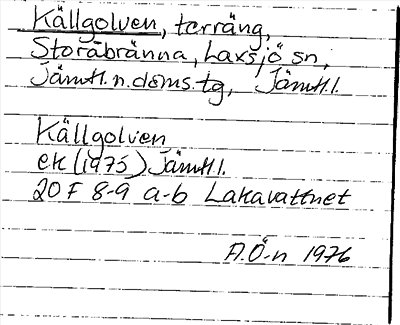 Källgolven, terräng,
Storåbränna, Laxsjö sn,
Jämtl. n. doms. tg, Jämtl. l.
Källgolven
ek (1975) Jämtl. l.
20 F 8-9 a-b Lakavattnet
A. Ö-n 1976